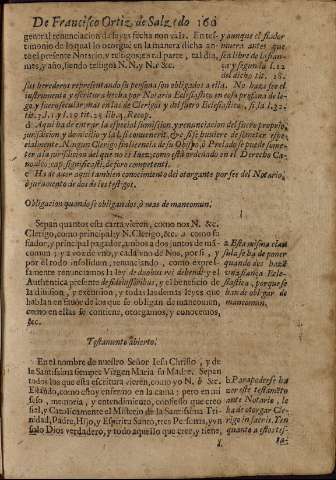 De Francisco Ortiz de Salzedo 160
general renunciacion de leyes fecha non vala. En tes-
timonio de lo qual lo otorguè en la manera dicha an-
te el presente Notario, y testigos, en tal parte, tal dia,
mes, y año, siendo testigos N. N. y N. &c.
y aunque el fiador
muera antes que
sea libre de la fian-
ça y segun la l. 12
del dicho tit. 18.
sus herederos representando su persona son obligados a ella. No
instrumento y escritura hecha por Notario Eclesiastico en cosa profana de le-
go, y fuero secular, mas en las de Clerigo y del fuero Eclesiastico, si, la l. 32.
tit. 3. l. 4 y l. 10 tit. 25 lib. 4. Recop.
d Aqui ha de entrar la especial sumission, y renunciacion del fuero proprio,
jurisdicion y domicilio y la l. si convenerit, &c. si se huviere de someter espe-
cialmente. Ningun Clerigo sin licencia de su Obispo, ò Prelado se puede some-
ter a la jurisdicion del que no es Juez, como està ordenado en el Derecho Ca-
nonico, cap. significasti, de foro competenti.
e Ha de aver aqui tambien conocimiento del otorgante por fee del Notario,
ò juramento de dos de los testigos.
Obligacion quando se obligan dos, ò mas de mancomun.
Sepan quantos esta carta vieren, como nos N. &c.
Clerigo, como principal y N. Clerigo, &c. a como su
fiador, y principal pagador, ambos a dos juntos de má-
comun, y a voz de vno, y cada vno de Nos, por si, y
por el todo insolidum, renunciando, como expres-
samente renunciamos la ley de duobus reis debendi y el
Authentica presente de fideiussoribus, y el beneficio de
la division, y excursion, y todas las demas leyes que
hablan en favor de los que se obligan de mancomun,
como en ellas se contiene, otorgamos, y conocemos,
&c.
a Esta misma clau
sula se ha de poner
quando dos hazē
vna fiança Ecle-
siastica, porque se
han de obligar de
mancomun.
Testamento abierto.
En el nombre de nuestro Señor Iesu Christo, y de
la Santissima siempre Virgen Maria su Madre. Sepan
todos los que esta escritura vieren, como yo N. b &c.
Estando, como estoy enfermo en la cama, y pero en mi
seso, memoria, y entendimiento, confiesso que creo
fiel, y Catholicamente el Misterio de la Santissima Tri-
nidad, Padre, Hijo, y Espiritu Santo, tres Personas, y vn
solo Dios verdadero, y todo aquello que cree, y tiene,
b Para poder se ha
zer este testamēto
ante Notario, lo
ha de otorgar Cle-
rigo in sacris. Y en
quanto a estos tes-